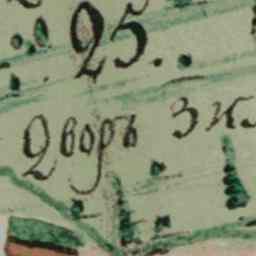 25.
Дворъ Зж